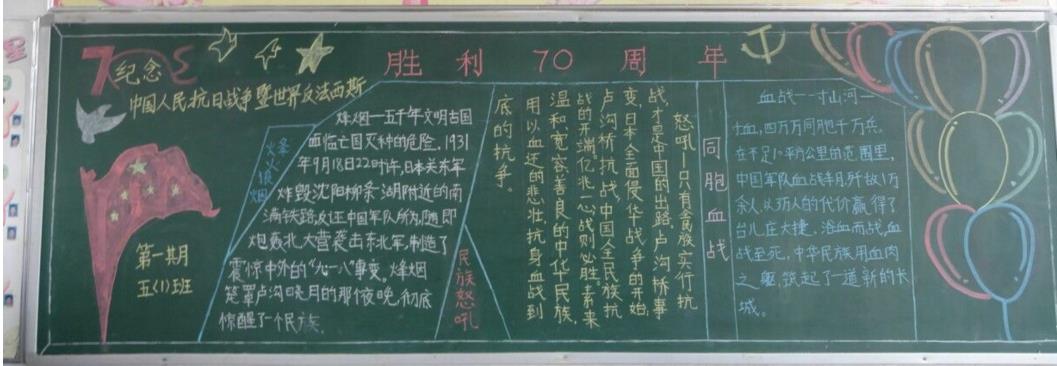 70
纪念
中国人民抗日战争暨世界反法西斯
胜利70周年
第一期
五(1)班
条火狼烟
烽烟一五千年文明古国
面临亡国灭种的危险，1931
年9月18日22时许，日本关东军
炸毁沈阳柳条湖附近的南
满铁路，反诬中国军队所为，随即
炮轰北大营袭击东北军，制造了
震惊中外的"九一八"事变。烽烟
笼罩卢沟晓月的那个夜晚，彻底
惊醒了一个民族。
民族怒吼
怒吼一只有全民族实行抗
战，才是中国的出路。卢沟桥事
变，日本全面侵华战争的开始；
卢沟桥抗战，中国全民族抗
战的开端。亿兆一心，战则必胜。素来
温和、宽容、善良的中华民族，
用以血还血的悲壮，抗身血战到
底的抗争。
同胞血战
血战一一寸山河一
寸血，四万万同胞千万兵。
在不足10平方公里的范围里，
中国军队血战半月，歼敌1万
余人，以3万人的代价赢得了
台儿庄大捷。浴血而战，血
战至死，中华民族用血肉
之躯，筑起了一道新的长
城。